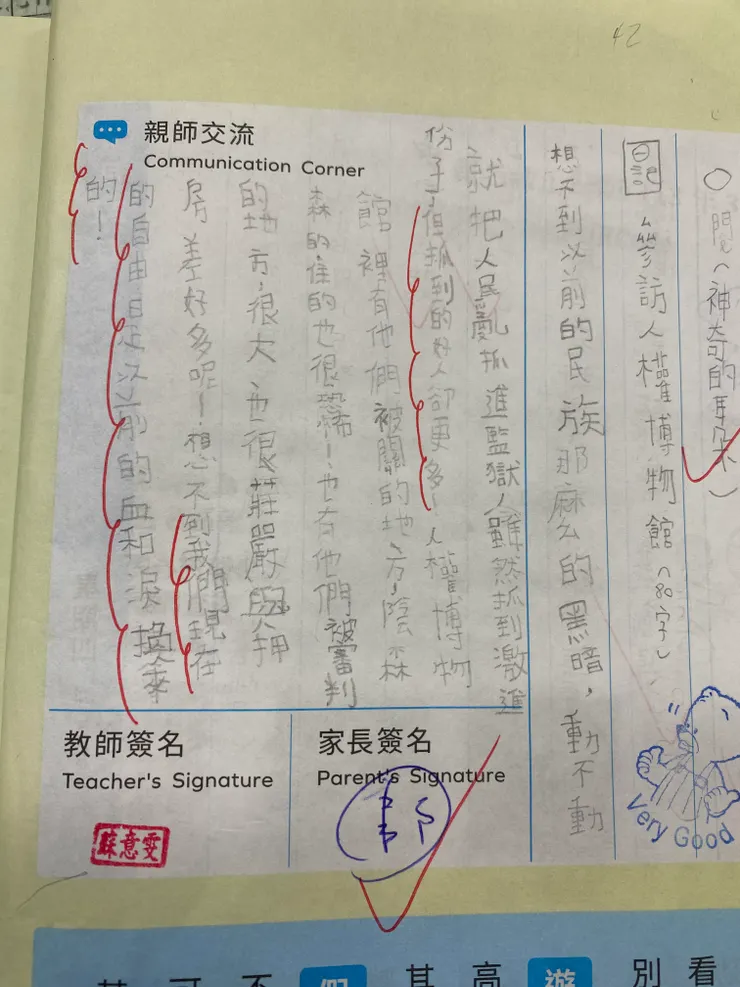 42
○閱(神奇的耳朵)
日記 參訪人權博物館(80字)
想不到以前的民族那麼的黑暗，動不動
就把人民亂抓進監獄，雖然抓到激進
份子，但抓到的好人卻更多！人權博物
館裡有他們被關的地方，陰森
森的住的也很恐怖！也有他們被審判
的地方，很大也很莊嚴，與押
房差好多呢！想不到我們現在
的自由是以前的血和淚換來
的！
親師交流
Communication Corner
教師簽名
Teacher's Signature
蘇意雯
家長簽名
Parent's Signature
Very Good
不
個
其高
遊
別看